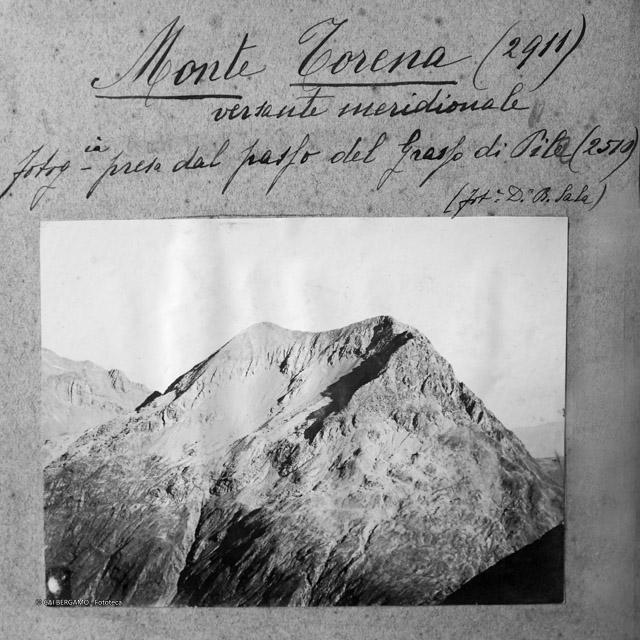 Monte Torena (2911)
versante meridionale
fotog.ia presa dal passo del Grasso di Pila (2510)
(fot.a D.r B. Sala)
© CAI BERGAMO - Fototeca